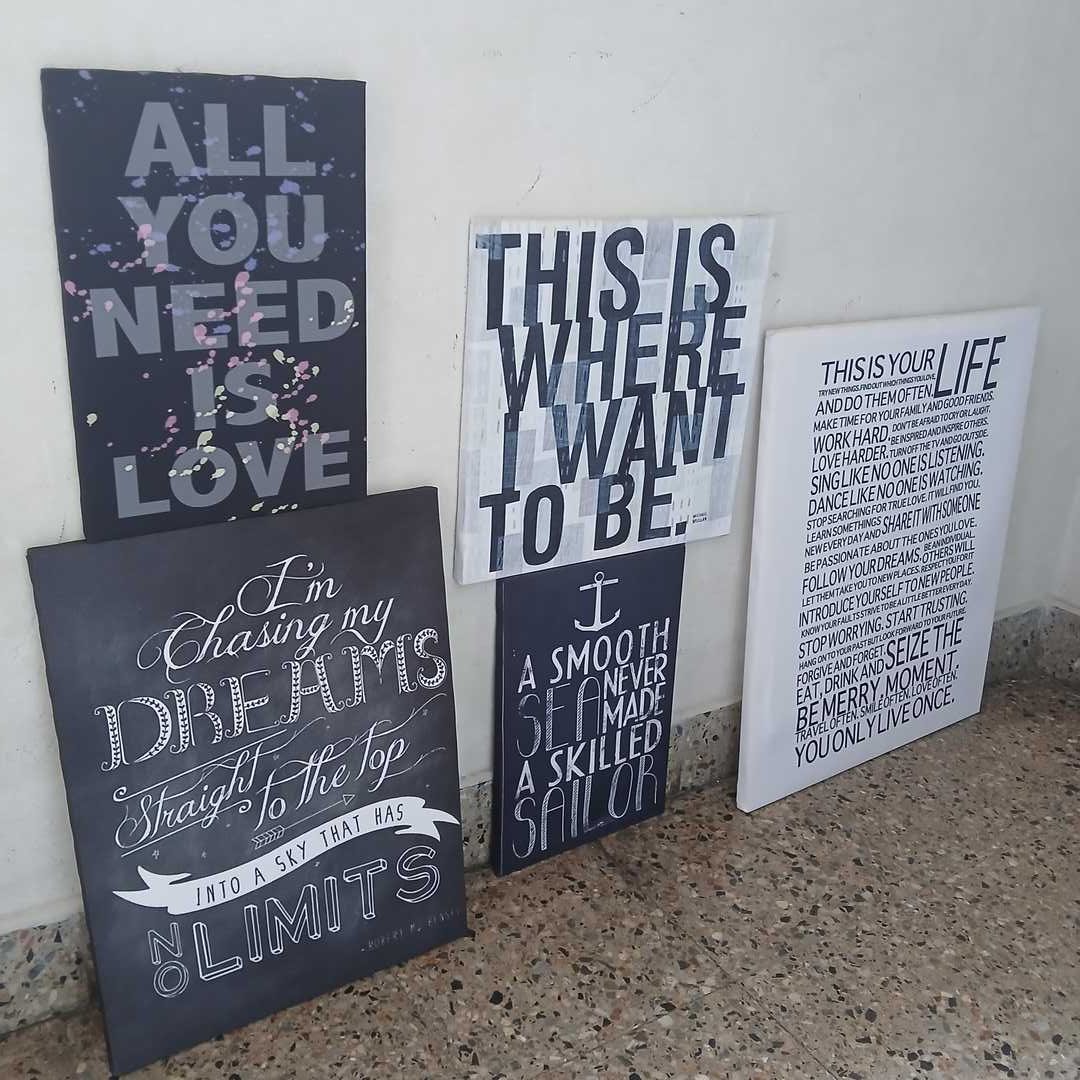 ALL
YOU
NEED
IS
LOVE
I'm
Chasing my
DREAMS
Straight
to the Top
INTO A SKY THAT HAS
NO LIMITS
THIS IS
WHERE
I WANT
TO BE.
MICHAEL
MULLAN
A SMOOTH
SEA NEVER
MADE
A SKILLED
SAILOR
THIS IS YOUR LIFE
TRY NEW THINGS. FIND OUT WHICH THINGS YOU LOVE,
AND DO THEM OFTEN.
MAKE TIME FOR YOUR FAMILY AND GOOD FRIENDS.
WORK HARD DON'T BE AFRAID TO CRY OR LAUGH.
BE INSPIRED AND INSPIRE OTHERS.
LOVE HARDER. TURN OFF THE TV AND GO OUTSIDE.
SING LIKE NO ONE IS LISTENING.
DANCE LIKE NO ONE IS WATCHING.
STOP SEARCHING FOR TRUE LOVE. IT WILL FIND YOU.
LEARN SOMETHINGS
NEW EVERY DAY AND SHARE IT WITH SOMEONE
BE PASSIONATE ABOUT THE ONES YOU LOVE.
FOLLOW YOUR DREAMS. BE AN INDIVIDUAL.
OTHERS WILL
LET THEM TAKE YOU TO NEW PLACES. RESPECT YOU FOR IT
INTRODUCE YOURSELF TO NEW PEOPLE.
KNOW YOUR FAULTS STRIVE TO BE A LITTLE BETTER EVERY DAY.
STOP WORRYING. START TRUSTING.
HANG ON TO YOUR PAST BUT LOOK FORWARD TO YOUR FUTURE.
FORGIVE AND FORGET.
EAT, DRINK AND SEIZE THE
BE MERRY. MOMENT.
TRAVEL OFTEN. SMILE OFTEN. LOVE OFTEN.
YOU ONLY LIVE ONCE.